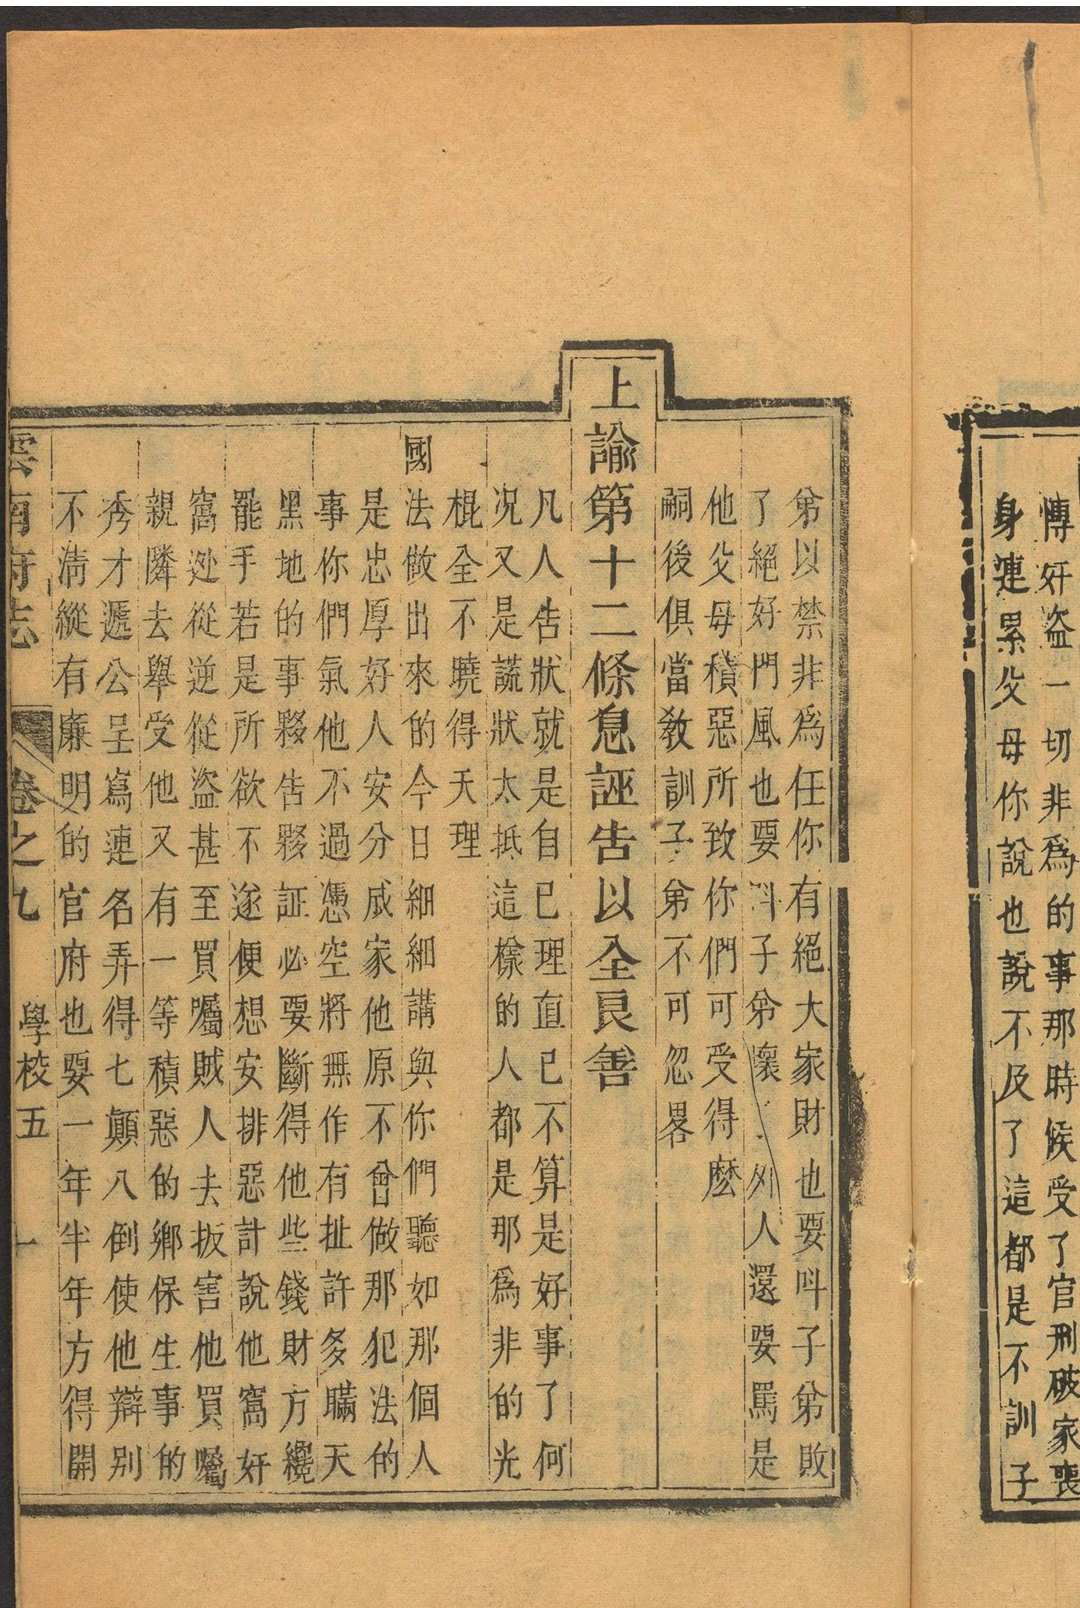 愽奸盗一切非爲的事那時候受了官刑破家喪
身連累父母你說也說不及了這都是不訓子
弟以禁非爲任你有絕大家財也要呌子弟敗
了絕好門風也要呌子弟壞外人還要罵是
他父母積惡所致你們可受得麽
嗣後俱當敎訓子弟不可忽畧
上諭第十二條息誣告以全良善
凡人告狀就是自已理直已不算是好事了何
况又是謊狀太抵這樣的人都是那爲非的光
棍全不曉得天理
國
法做出來的今日細細講與你們聽如那個人
是忠厚好人安分成家他原不曾做那犯法的
事你們氣他不過憑空將無作有扯許多瞞天
黑地的事夥告夥証必要斷得他些錢財方纔
罷手若是所欲不遂便想安排惡計說他窩奸
窩逃從逆從盜甚至買囑賊人去扳害他買囑
親隣去舉受他又有一等積惡的鄉保生事的
秀才遞公呈寫連名弄得七顛八倒使他辯别
不淸縱有廉明的官府也要一年半年方得開
雲南府志
卷之九
學校五
十